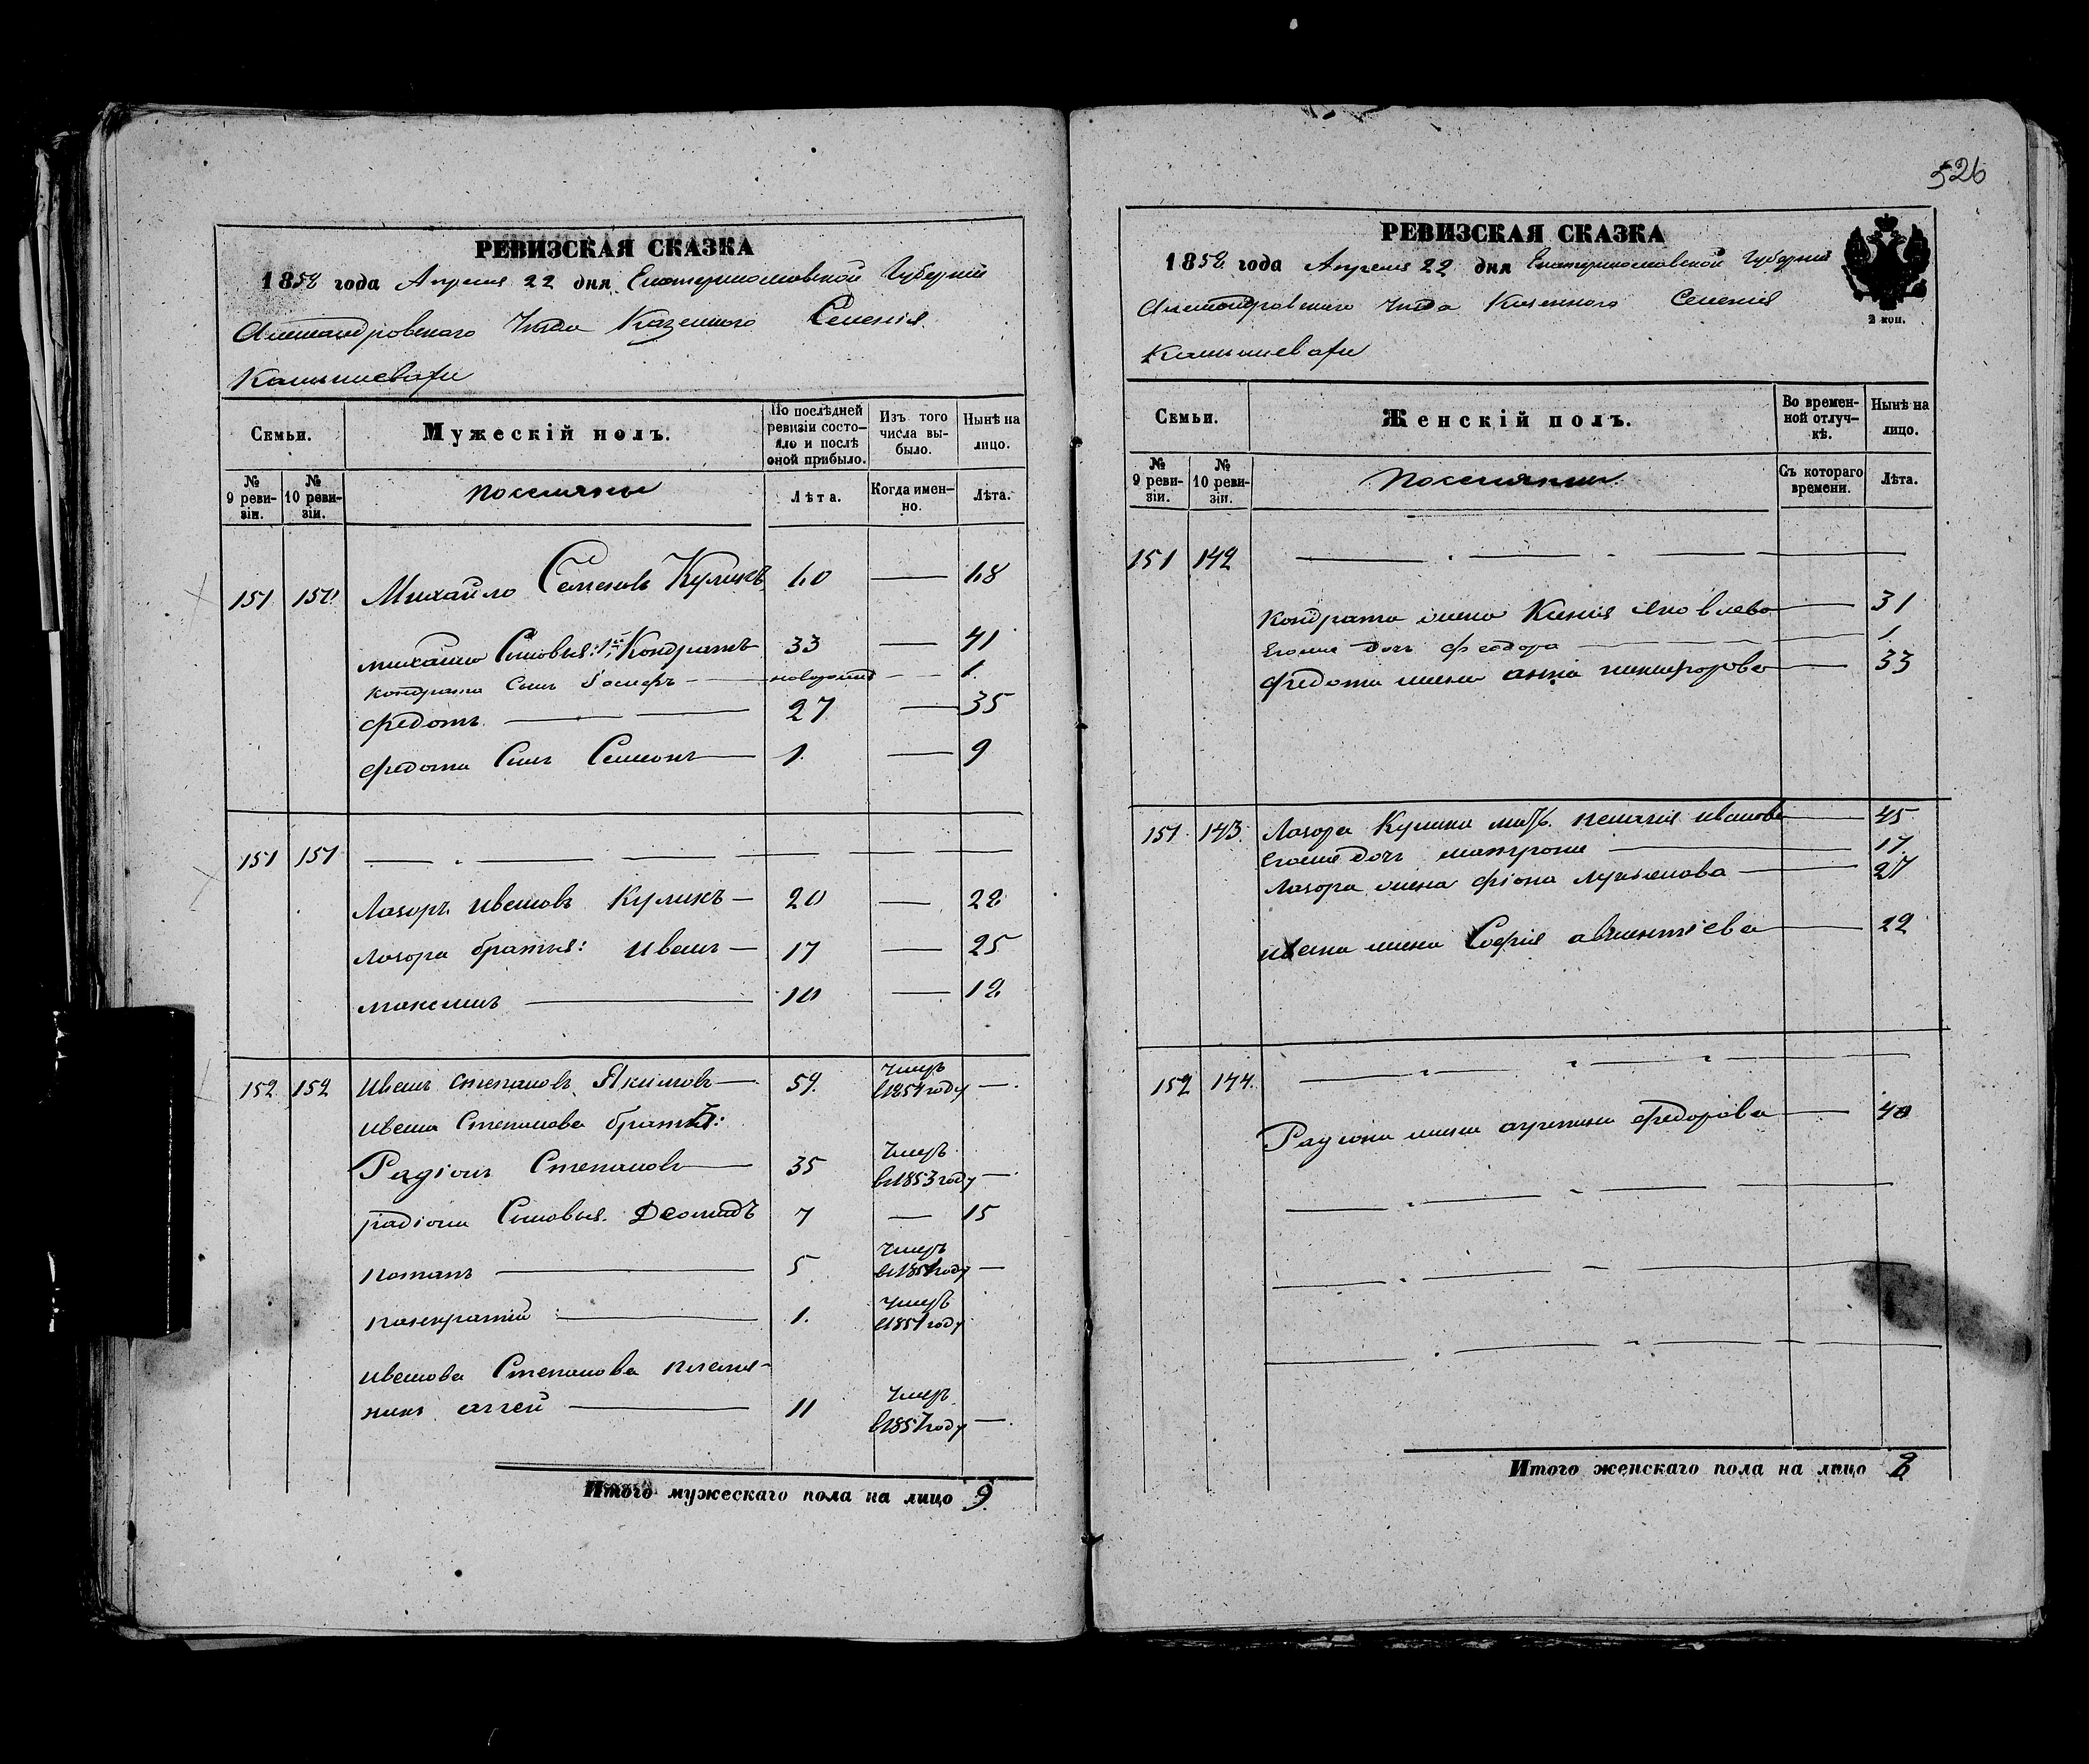 526
РЕВИЗСКАЯ СКАЗКА
1858 года Апреля 22 дня Екатеринославской Губерніи
Александровского Уезда Казенного Селенія
Камышевахи
Семьи.
Мужескій полъ.
По послѣдней ревизіи состояло и послѣ оной прибыло.
Изъ того числа выбыло.
Нынѣ на лицо.
№ 9 ревизіи.
№ 10 ревизіи.
поселяне
Лѣта.
Когда именно.
Лѣта.
151 150 Михайло Семеновъ Куликъ 60 — 68
михайла Сыновья: 1й Кондратъ 33 — 41
кондрата сынъ новорожд — 1.
федотъ — 27 — 35
федота Сынъ Семионъ — 1. — 9
151 151 — — — — — —
Лазоръ ивановъ Куликъ — 20 — 28
Лазора братья: иванъ — 17 — 25
максимъ — 10 — 18
152 152 иванъ степановъ Якимовъ — 59. умеръ в 1854 году —
ивана Степанова братья:
Радіонъ Степановъ — 35 умеръ в 1853 году —
радіона Сыновья. Деомидъ 7 — 15
потапъ — 5. умеръ в 1851 году —
панкратій — 1. умеръ в 1851 году
иванова Степанова племя-
никъ аггей — 11 умеръ в 1857 году —
Итого мужескаго пола на лицо 9.
РЕВИЗСКАЯ СКАЗКА
1858 года Апреля 22 дня Екатеринославской Губерніи
Александровского Уезда Казенного Селенія
Камышевахи
2 коп.
Семьи.
Женскій полъ.
Во временной отлучкѣ.
Нынѣ на лицо.
№ 9 ревизіи.
№ 10 ревизіи.
поселянки
Съ котораго времени.
Лѣта.
151 142 — — — —
Кондрата жена Ксенія Яковлева — 31
Егоже дочь феодора — 1.
федота жена анна никифорова — 33
151 143. Лазора Кулика мать пелагія иванова — 45
Егоже дочь матрона — 17.
Лазора жена фіона лукьянова — 27
ивана жена Софія авксентіева — 22
152 144. — — — —
Радіона жена агрипина федорова — 40
Итого женскаго пола на лицо 8